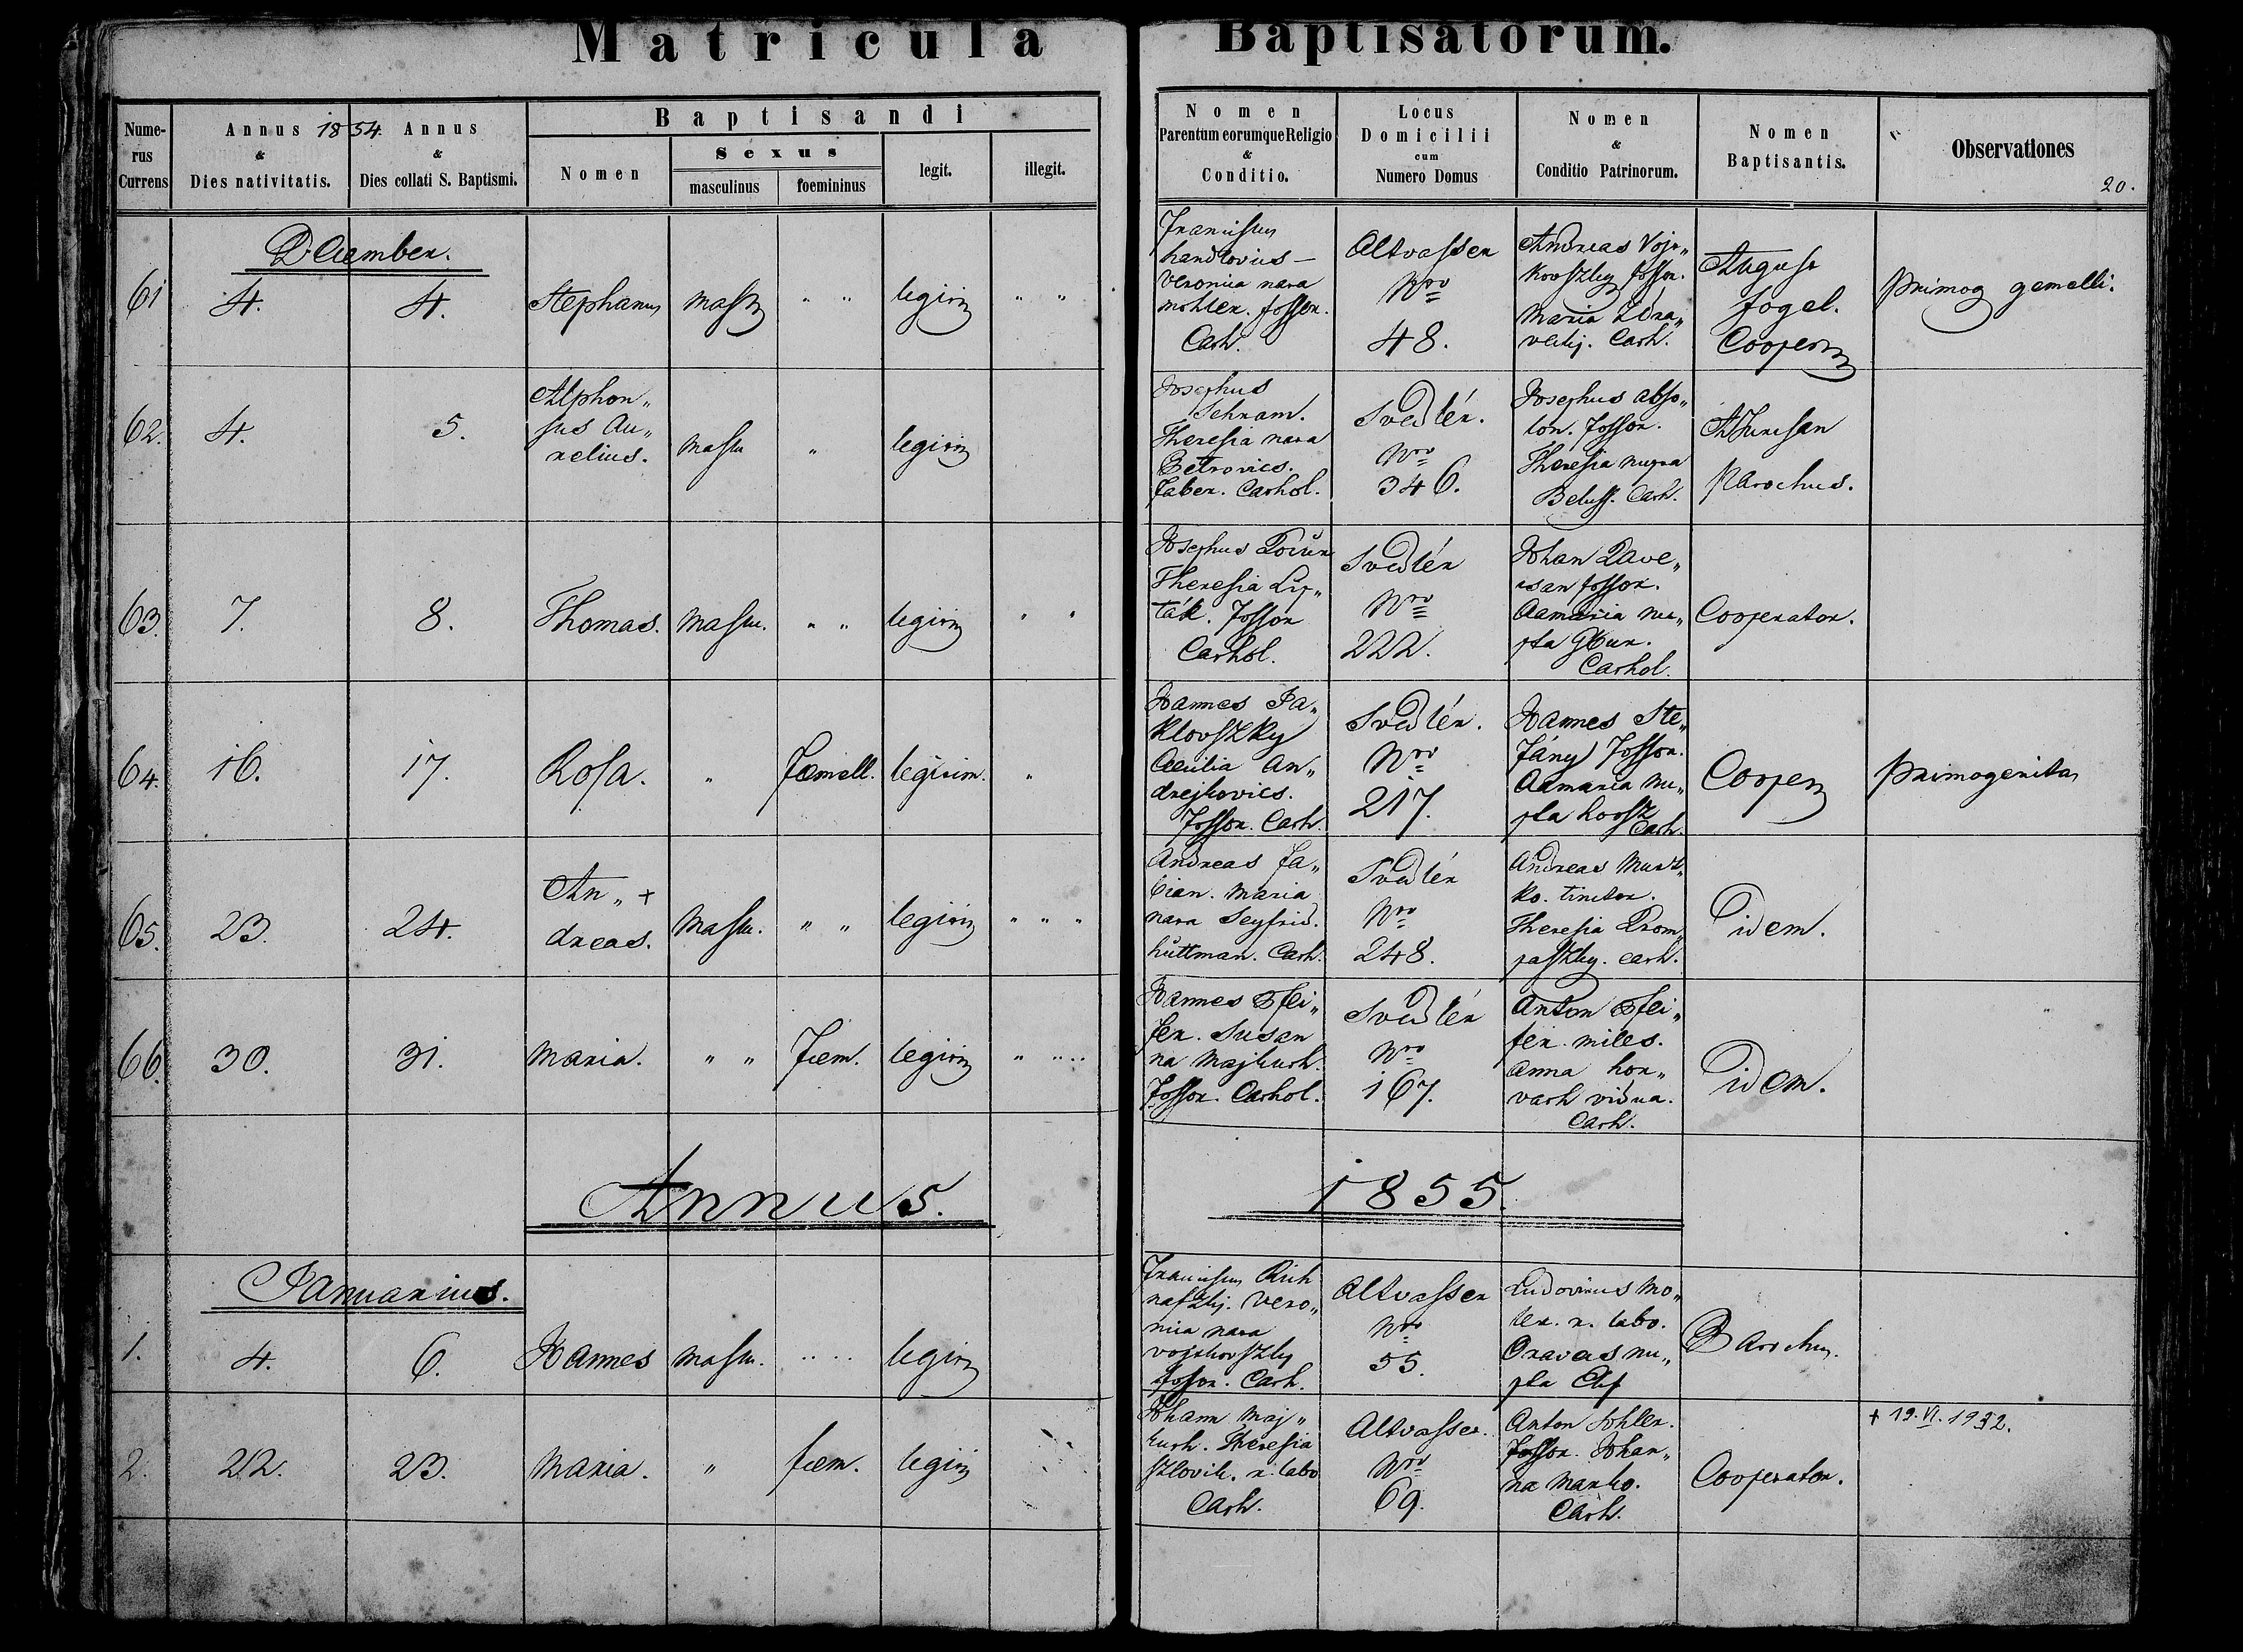 Matricula Baptisatorum.
Numerus Currens
Annus 1854. & Dies nativitatis.
Annus & Dies collati S. Baptismi.
Baptisandi
Nomen
Sexus
masculinus
foemininus
legit.
illegit.
Nomen Parentum eorumque Religio & Conditio.
Locus Domicilii cum Numero Domus
Nomen & Conditio Patrinorum.
Nomen Baptisantis.
Observationes
20.
December.
61
4.
4.
Stephanus
legitim
handlovius
Veronica nata
mohler. fossor.
Cath.
Altvasser
Nro
48.
Andreas Vojt„
kovszky fossor.
Maria Zdra„
Cath.
August
fogel.
Cooper
primog gemelli.
62.
4.
5.
Alphon„
sus Au„
relius.
"
legitim
Josephus
Schram.
Theresia nata
Petrovics.
faber. Cathol.
Svedlér.
Nro
346.
Josephus abso„
lon. fossor.
Theresia nupta
Beluss. Cath.
Parochus.
63.
7.
8.
Thomas.
" "
legitim
" "
Josephus
Theresia Lip„
ták. fossor
Cathol.
Svedlér
Nro
222.
Johan
fossor.
Aamaria nu„
pta
Cathol.
Cooperator.
64.
16.
17.
Rosa.
"
foemell.
legitim.
"
Joannes Ja„
klovszky
Cecilia An„
drejkovics.
Fossor. Cath.
Svedlér.
Nro
217.
Joannes Ste„
fány Fossor.
Aamaria nu„
pta
Cath.
Cooper
primogenita
65.
23.
24.
An„ +
dreas.
" "
legitim
" " "
Andreas fa„
bian. Maria
nata Seyfrid.
hüttman. Cath.
Svedlér
Nro
248.
Andreas
ko. tinctor.
Theresia Krom„
paszky. cath.
idem.
66.
30.
31.
Maria.
" "
Foem.
legitim
Joannes Pfei„
fer. Susan
na Majkuth.
Fossor. Cathol.
Svedlér
Nro
167.
Anton Pfei„
fer. miles.
Anna hor„
vath vidua.
Cath.
idem.
Annus. 1855.
Januarius.
1.
4.
6.
Joannes
legitim
Franciscus Rich
naszky. Vero„
nica nata
vojtkovszky
fossor. Cath.
Altvasser
Nro
55.
Ludovicus mo„
ler. r. labo.
Oravecz nu„
pta
Parochus.
2.
22.
23.
Maria.
"
foem.
legitim
Johann Maj„
kuth. Theresia
Cath.
Altvasser.
Nro
69.
Anton Kohler.
Fossor. Johan„
na Marko.
Cath.
Cooperator.
+ 19. VI. 1932.